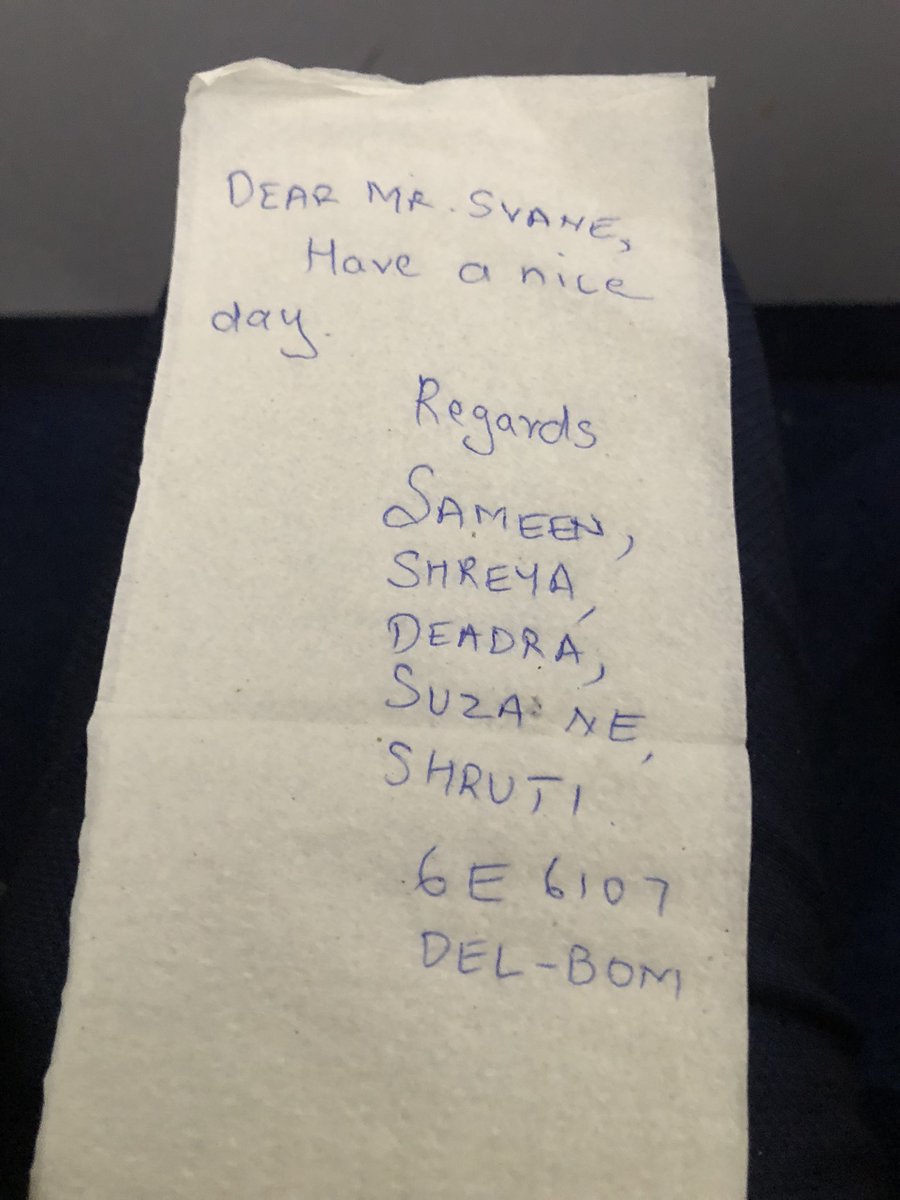 DEAR MR. SVANE,
Have a nice
day.
Regards
SAMEEN,
SHREYA,
DEADRA,
SUZANNE,
SHRUTI.
6E 6107
DEL-BOM